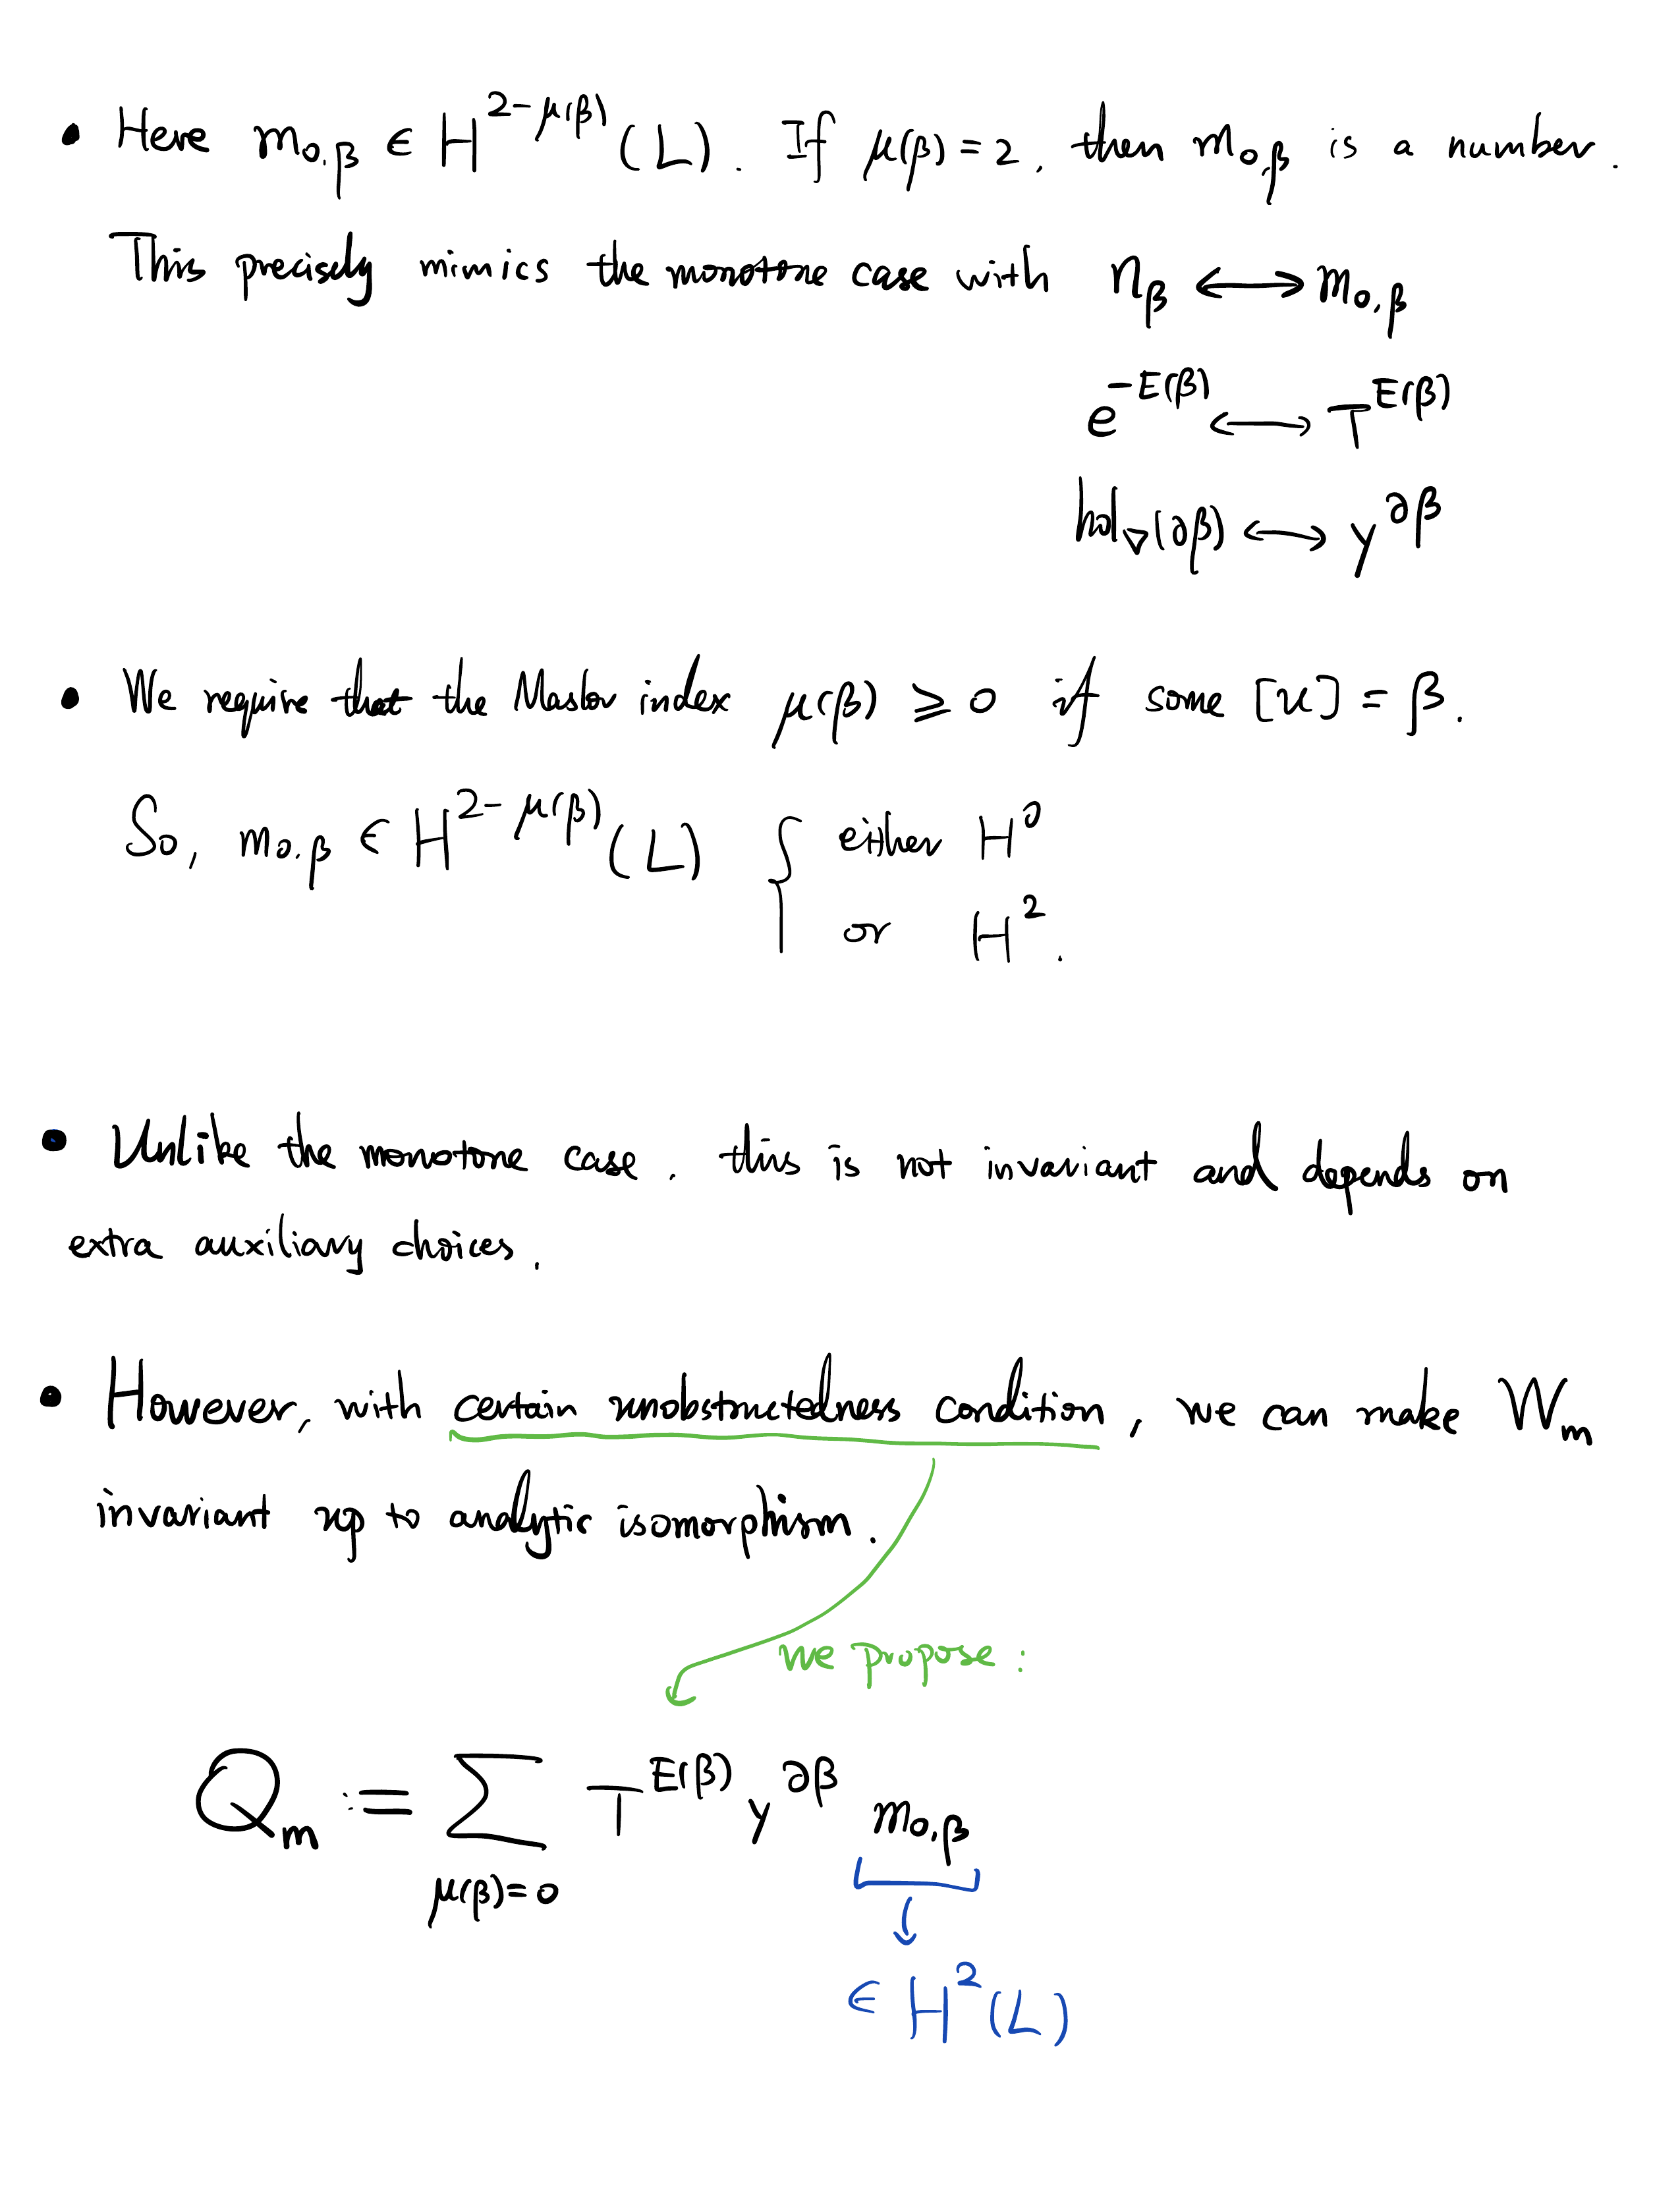 • Here m_{0,β} ∈ H^{2-μ(β)}(L). If μ(β) = 2, then m_{0,β} is a number.
This precisely mimics the monotone case with n_β ⟷ m_{0,β}
e^{-E(β)} ⟷ T^{E(β)}
hol_∇(∂β) ⟷ y^{∂β}
• We require that the Maslov index μ(β) ⩾ 0 if some [u] = β.
So, m_{0,β} ∈ H^{2-μ(β)}(L) { either H^0
or H^2.
• Unlike the monotone case, this is not invariant and depends on
extra auxiliary choices.
• However, with certain unobstructedness condition, we can make W_m
invariant up to analytic isomorphism.
we propose:
Q_m := ∑_{μ(β)=0} T^{E(β)} y^{∂β} m_{0,β}
∈ H^2(L)